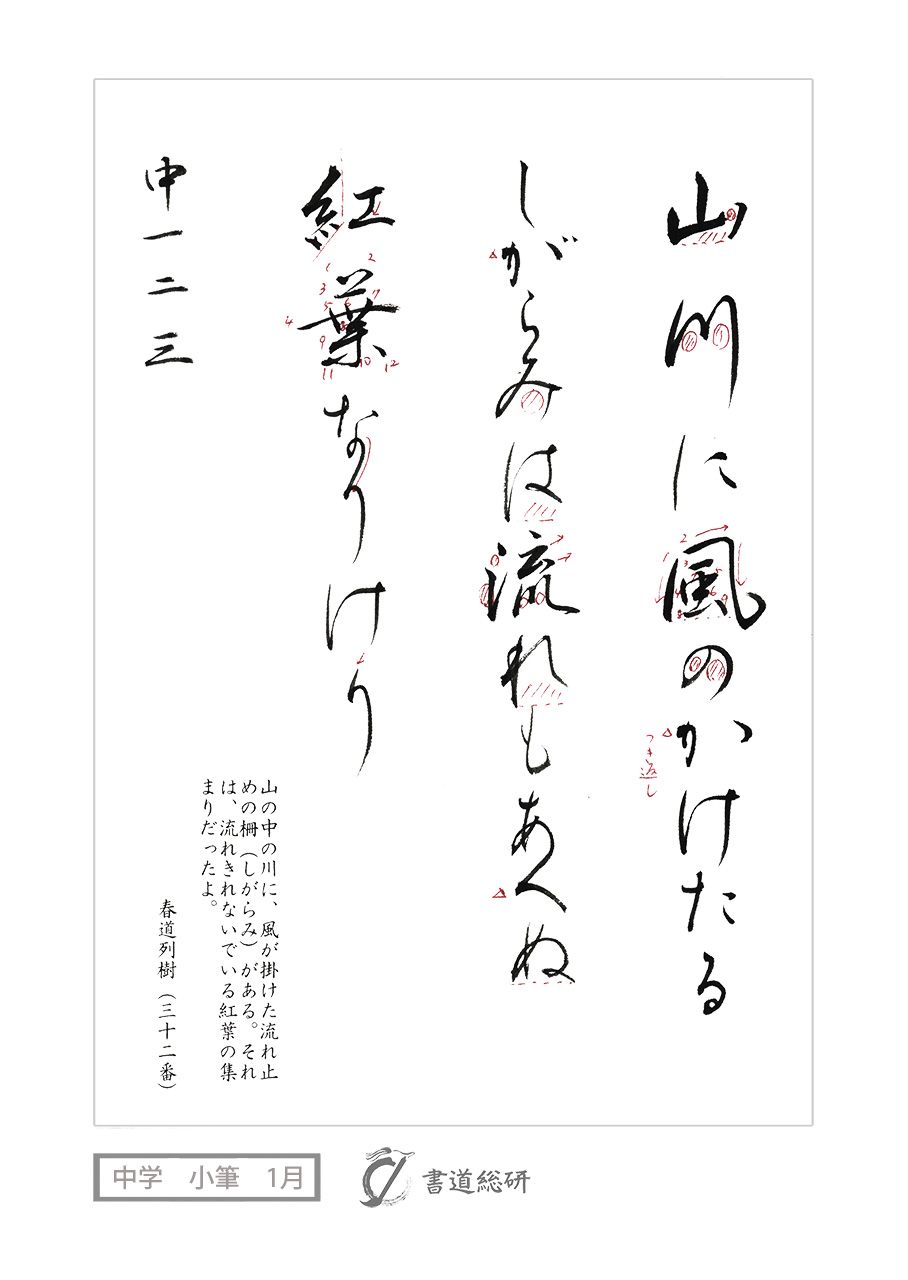 山川に風のかけたる
しがらみは流れもあへぬ
紅葉なりけり
中一二三
つき返し
山の中の川に、風が掛けた流れ止
めの柵（しがらみ）がある。それ
は、流れきれないでいる紅葉の集
まりだったよ。
春道列樹（三十二番）
中学 小筆 1月
書道総研